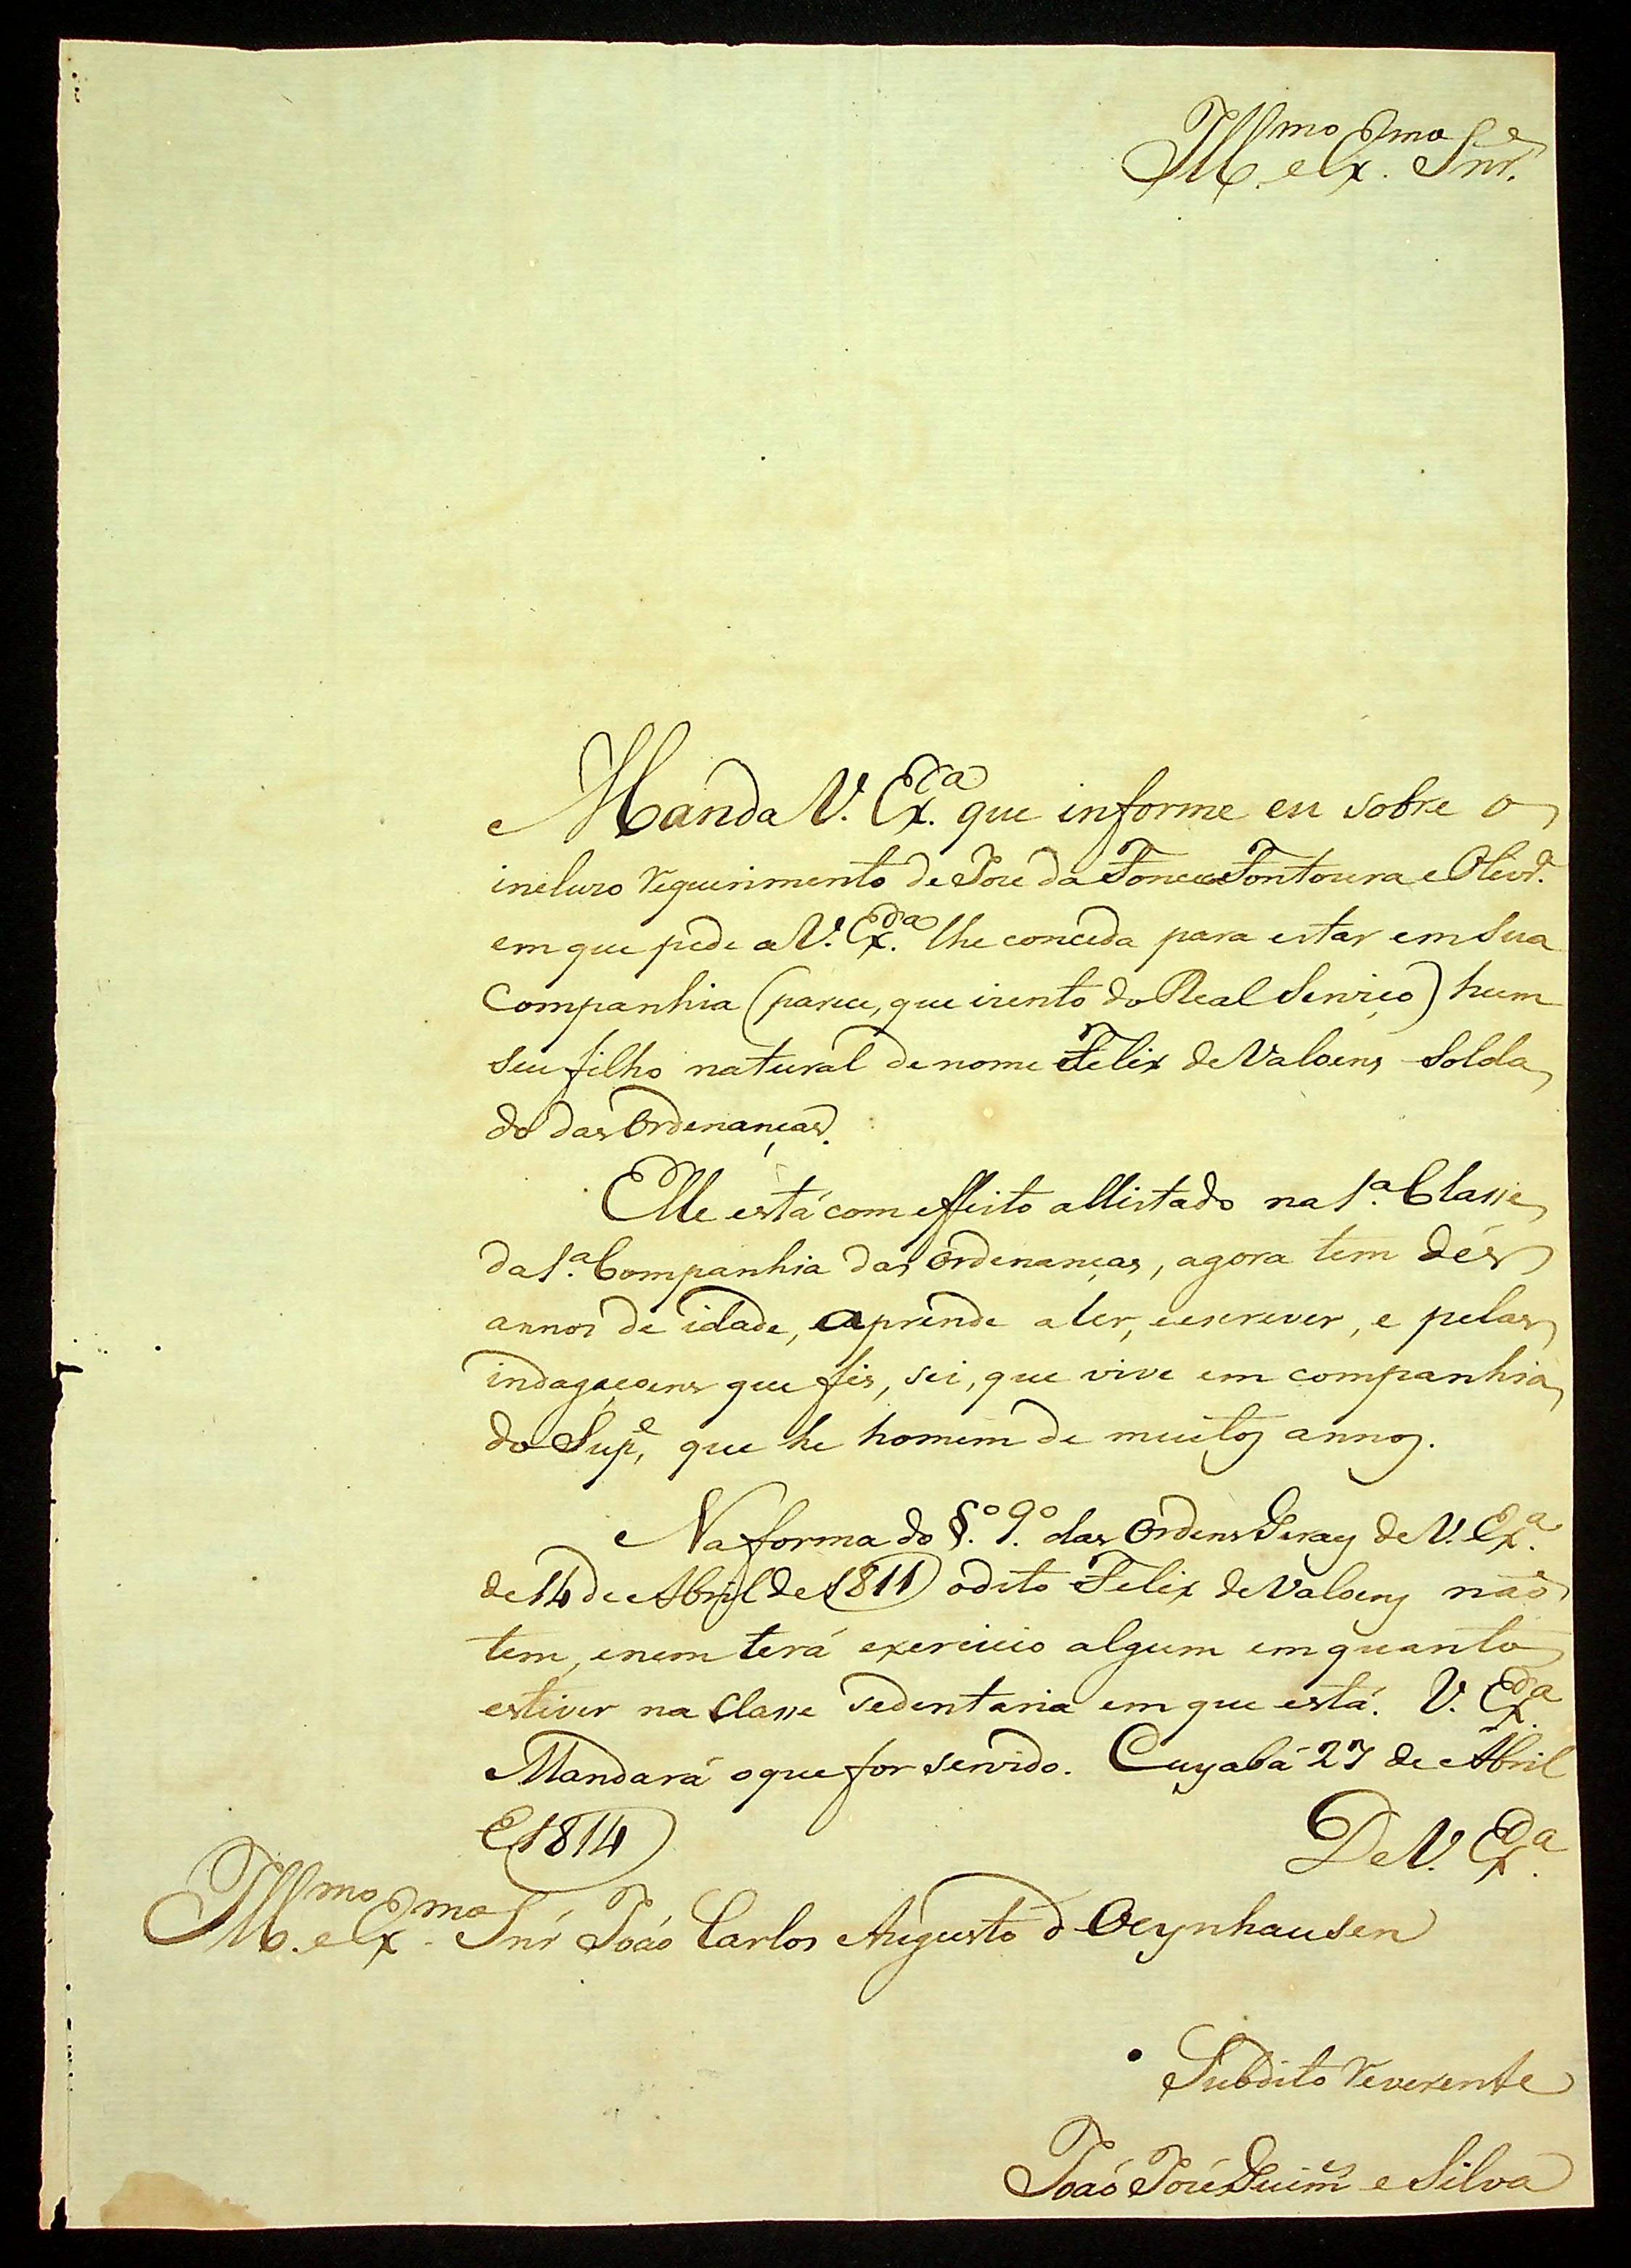 Ill.mo e Ex.mo Snr.
Manda V. Ex.cia que informe eu sobre o
incluzo requerimento de Joze da Fonc.ca Fontoura e Olivr.a
em que pede a V. Ex.cia lhe conceda para estar em sua
Companhia (parece, que izento do Real Serviço) hum
seu filho natural de nome Felix de Valoens Solda
do das Ordenanças.
Elle está com effeito allistado na 1.a Classe
da 1.a Companhia das Ordenanças, agora tem dés
annos de idade, aprende a ler, e escrever, e pelas
indagaçoens que fis, sei, que vive em companhia
do Sup.e, que he homem de muitos annos.
Na forma do §.o 9.o das Ordens Geraes de V. Ex.a
de 14 de Abril de 1811 o dito Felix de Valoens não
tem, e nem terá exercicio algum em quanto
estiver na Classe sedentaria em que está. V. Ex.cia
Mandará o que for servido. Cuyabá 27 de Abril
de 1814
De V. Ex.cia
Ill.mo e Ex.mo Snr João Carlos Augusto d'Oeynhausen
Subdito reverente
João José Guim.es e Silva